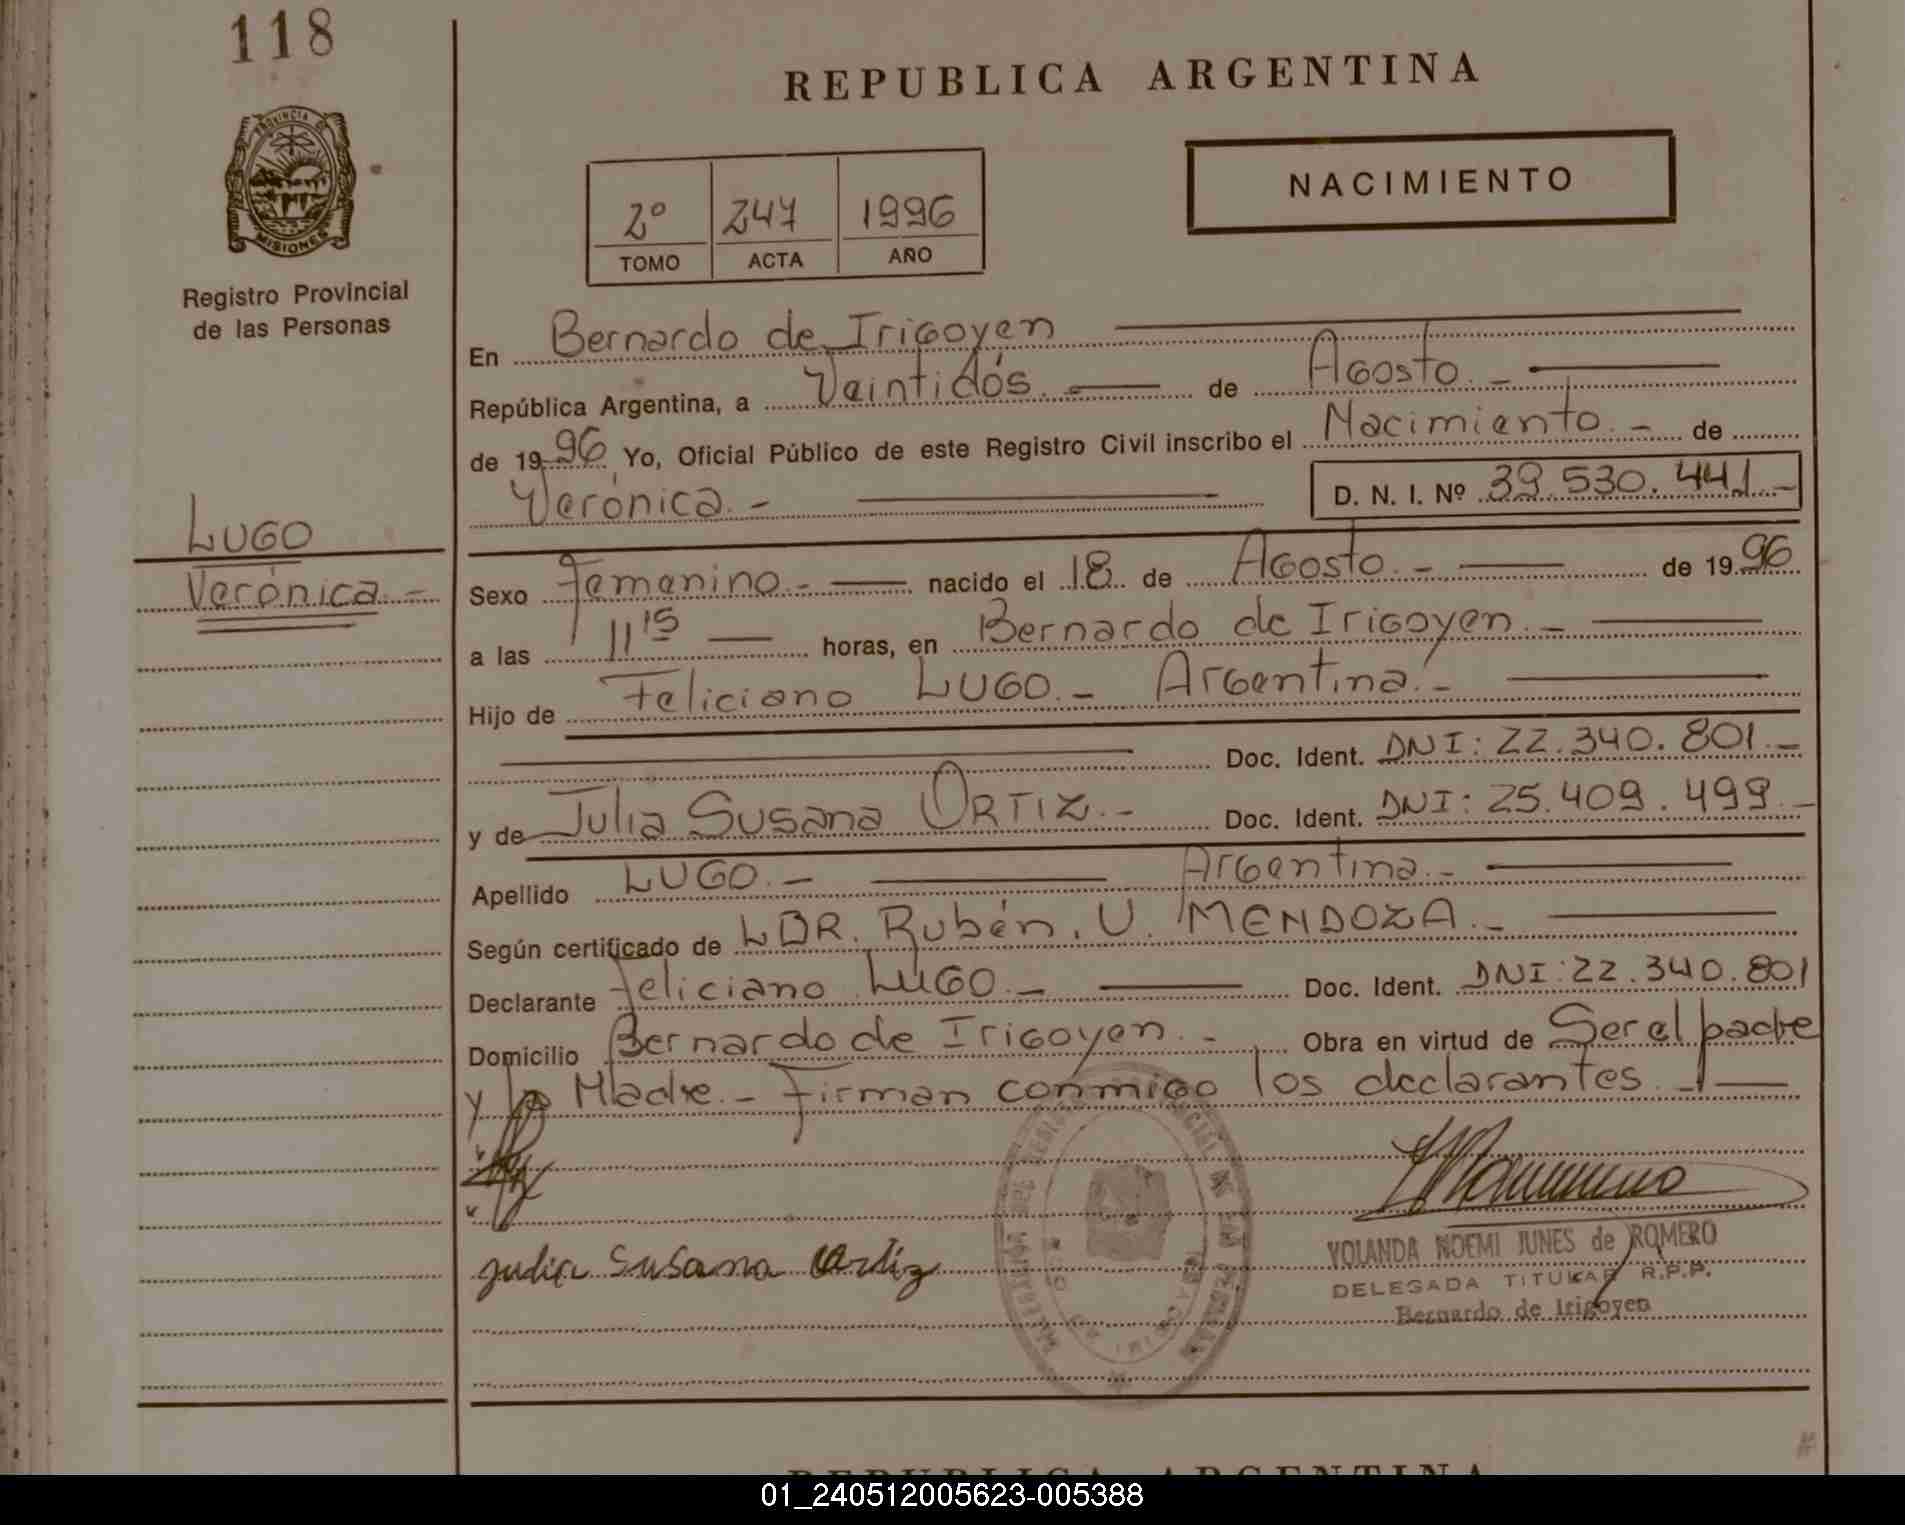 118
REPUBLICA ARGENTINA
PROVINCIA DE
MISIONES
Registro Provincial
de las Personas
2º 247 1996
TOMO ACTA AÑO
NACIMIENTO
En Bernardo de Irigoyen
República Argentina, a Veintidós.- de Agosto.-
de 1996 Yo, Oficial Público de este Registro Civil inscribo el Nacimiento.- de
Verónica.- D. N. I. Nº 39.530.441.-
LUGO
Verónica.-
Sexo Femenino.- nacido el 18 de Agosto.- de 1996
a las 11 15 horas, en Bernardo de Irigoyen.-
Hijo de Feliciano LUGO.- Argentina.-
Doc. Ident. DNI: 22.340.801.-
y de Julia Susana ORTIZ.- Doc. Ident. DNI: 25.409.499.-
Apellido LUGO.- Argentina.-
Según certificado de LDR. Rubén. U. MENDOZA.-
Declarante Feliciano LUGO.- Doc. Ident. DNI: 22.340.801
Domicilio Bernardo de Irigoyen.- Obra en virtud de Ser el padre
y la Madre.- Firman conmigo los declarantes.-
Julia Susana Ortiz
YOLANDA NOEMI JUNES de ROMERO
DELEGADA TITULAR R.P.P.
Bernardo de Irigoyen
REPUBLICA ARGENTINA
01_240512005623-005388